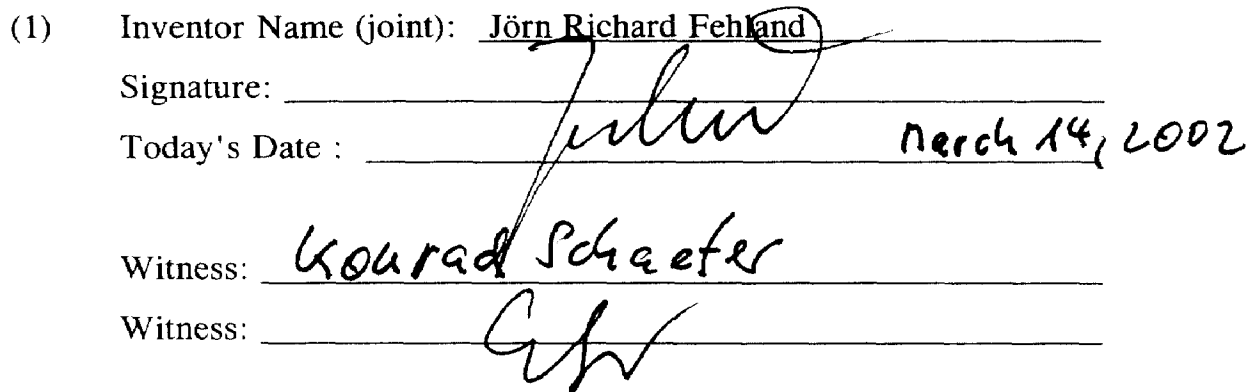 (1) Inventor Name (joint): Jörn Richard Fehland
Signature:
Today's Date : March 14, 2002
Witness: Konrad Schaefer
Witness: